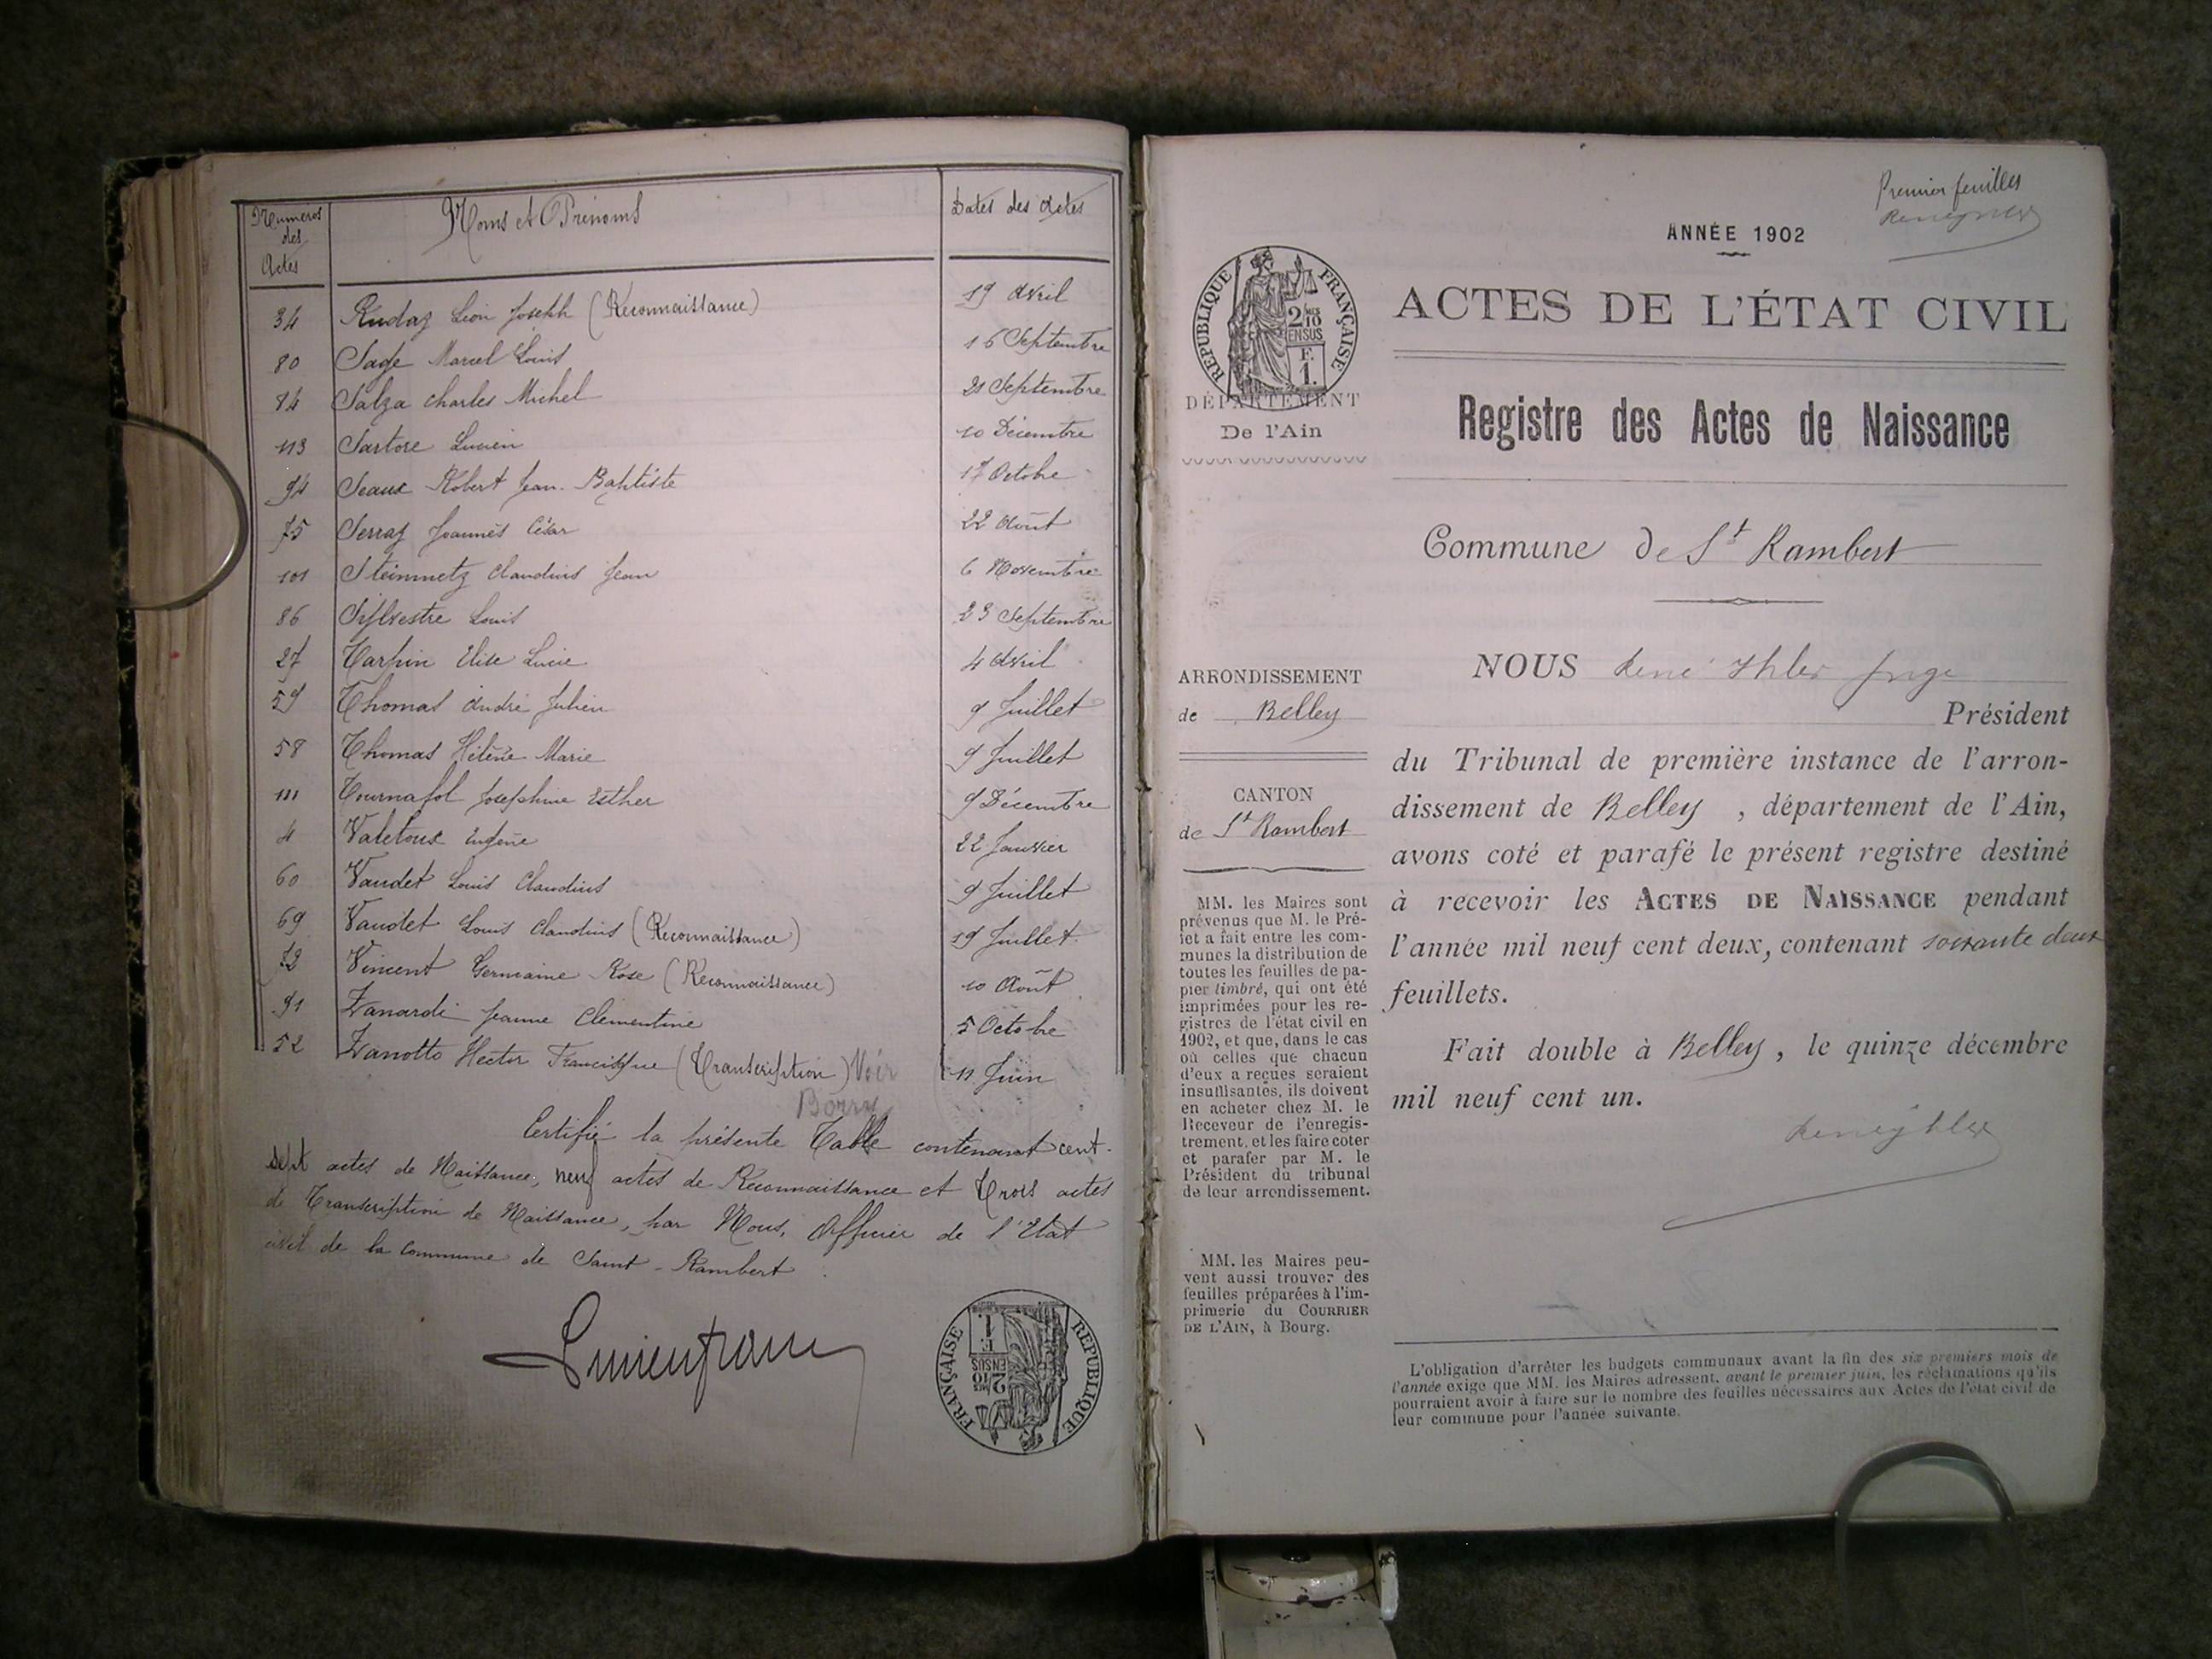 Numéros des Actes
Noms et Prénoms
Dates des Actes
34 Rudaz Léon Joseph (Reconnaissance) 19 Avril
80 Sage Marcel Louis 16 Septembre
84 Salza Charles Michel 21 Septembre
113 Sartore Lucien 10 Décembre
94 Seaux Robert Jean-Baptiste 17 Octobre
75 Serraz Joannès César 22 Août
101 Steinmetz Claudius Jean 6 Novembre
86 Sylvestre Louis 23 Septembre
27 Tarpin Elise Lucie 4 Avril
59 Thomas André Julien 9 Juillet
58 Thomas Hélène Marie 9 Juillet
111 Tournafol Joséphine Esther 9 Décembre
4 Valetoux Eugène 22 Janvier
60 Vaudet Louis Claudius 9 Juillet
69 Vaudet Louis Claudius (Reconnaissance) 19 Juillet
72 Vincent Germaine Rose (Reconnaissance) 10 Août
91 Zanardi Jeanne Clémentine 5 Octobre
52 Zanotto Hector Francisque (Transcription) Voir 11 Juin
Borry
Certifié la présente Table contenant cent-
sept actes de Naissance, neuf actes de Reconnaissance et trois actes
de Transcription de Naissance, par Nous, Officier de l'Etat
civil de la commune de Saint-Rambert
RÉPUBLIQUE FRANÇAISE
2/10 EN SUS
F. 1.
Premier feuilles
ANNÉE 1902
RÉPUBLIQUE FRANÇAISE
2/10 EN SUS
F. 1.
ACTES DE L'ÉTAT CIVIL
DÉPARTEMENT
De l'Ain
Registre des Actes de Naissance
Commune de St Rambert
ARRONDISSEMENT
de Belley
CANTON
de St Rambert
MM. les Maires sont
prévenus que M. le Pré-
fet a fait entre les com-
munes la distribution de
toutes les feuilles de pa-
pier timbré, qui ont été
imprimées pour les re-
gistres de l'état civil en
1902, et que, dans le cas
où celles que chacun
d'eux a reçues seraient
insuffisantes, ils doivent
en acheter chez M. le
Receveur de l'enregis-
trement, et les faire coter
et parafer par M. le
Président du tribunal
de leur arrondissement.
MM. les Maires peu-
vent aussi trouver des
feuilles préparées à l'im-
primerie du COURRIER
DE L'AIN, à Bourg.
NOUS René Ihler juge
Président
du Tribunal de première instance de l'arron-
dissement de Belley, département de l'Ain,
avons coté et parafé le présent registre destiné
à recevoir les ACTES DE NAISSANCE pendant
l'année mil neuf cent deux, contenant soixante deux
feuillets.
Fait double à Belley, le quinze décembre
mil neuf cent un.
L'obligation d'arrêter les budgets communaux avant la fin des six premiers mois de
l'année exige que MM. les Maires adressent, avant le premier juin, les réclamations qu'ils
pourraient avoir à faire sur le nombre des feuilles nécessaires aux Actes de l'état civil de
leur commune pour l'année suivante.